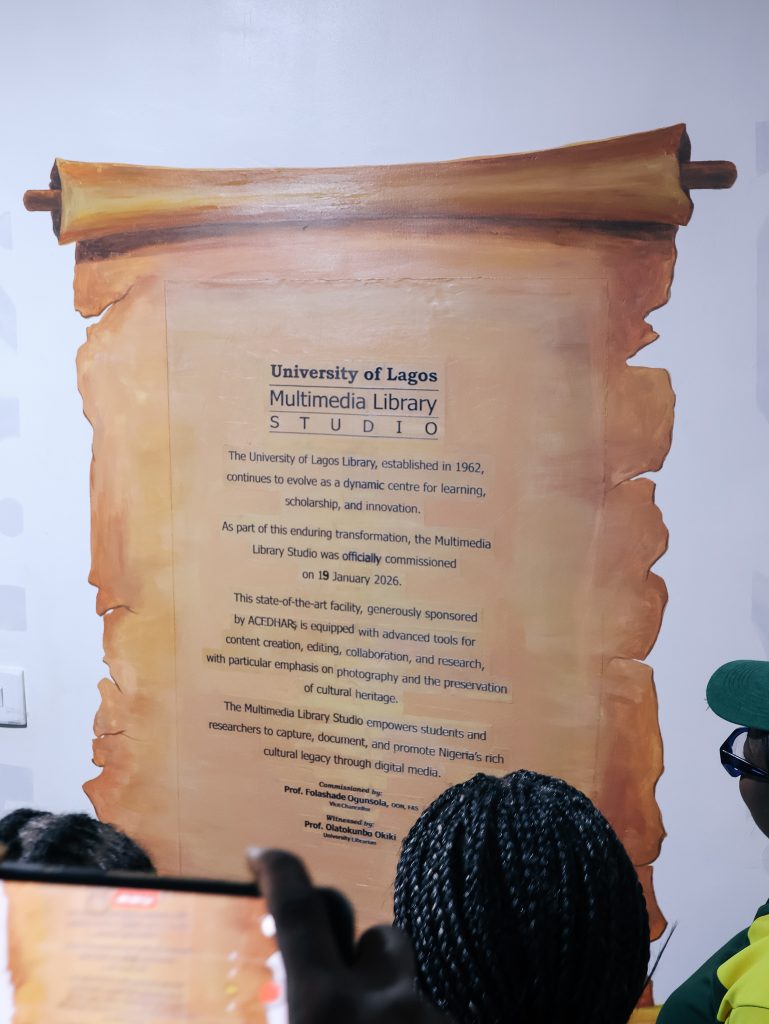 University of Lagos
Multimedia Library
STUDIO
The University of Lagos Library, established in 1962,
continues to evolve as a dynamic centre for learning,
scholarship, and innovation.
As part of this enduring transformation, the Multimedia
Library Studio was officially commissioned
on 19 January 2026.
This state-of-the-art facility, generously sponsored
by ACEDHARS is equipped with advanced tools for
content creation, editing, collaboration, and research,
with particular emphasis on photography and the preservation
of cultural heritage.
The Multimedia Library Studio empowers students and
researchers to capture, document, and promote Nigeria's rich
cultural legacy through digital media.
Commissioned by:
Prof. Folashade Ogunsola, OON, FAS
Vice Chancellor
Witnessed by:
Prof. Olatokunbo Okiki
University Librarian